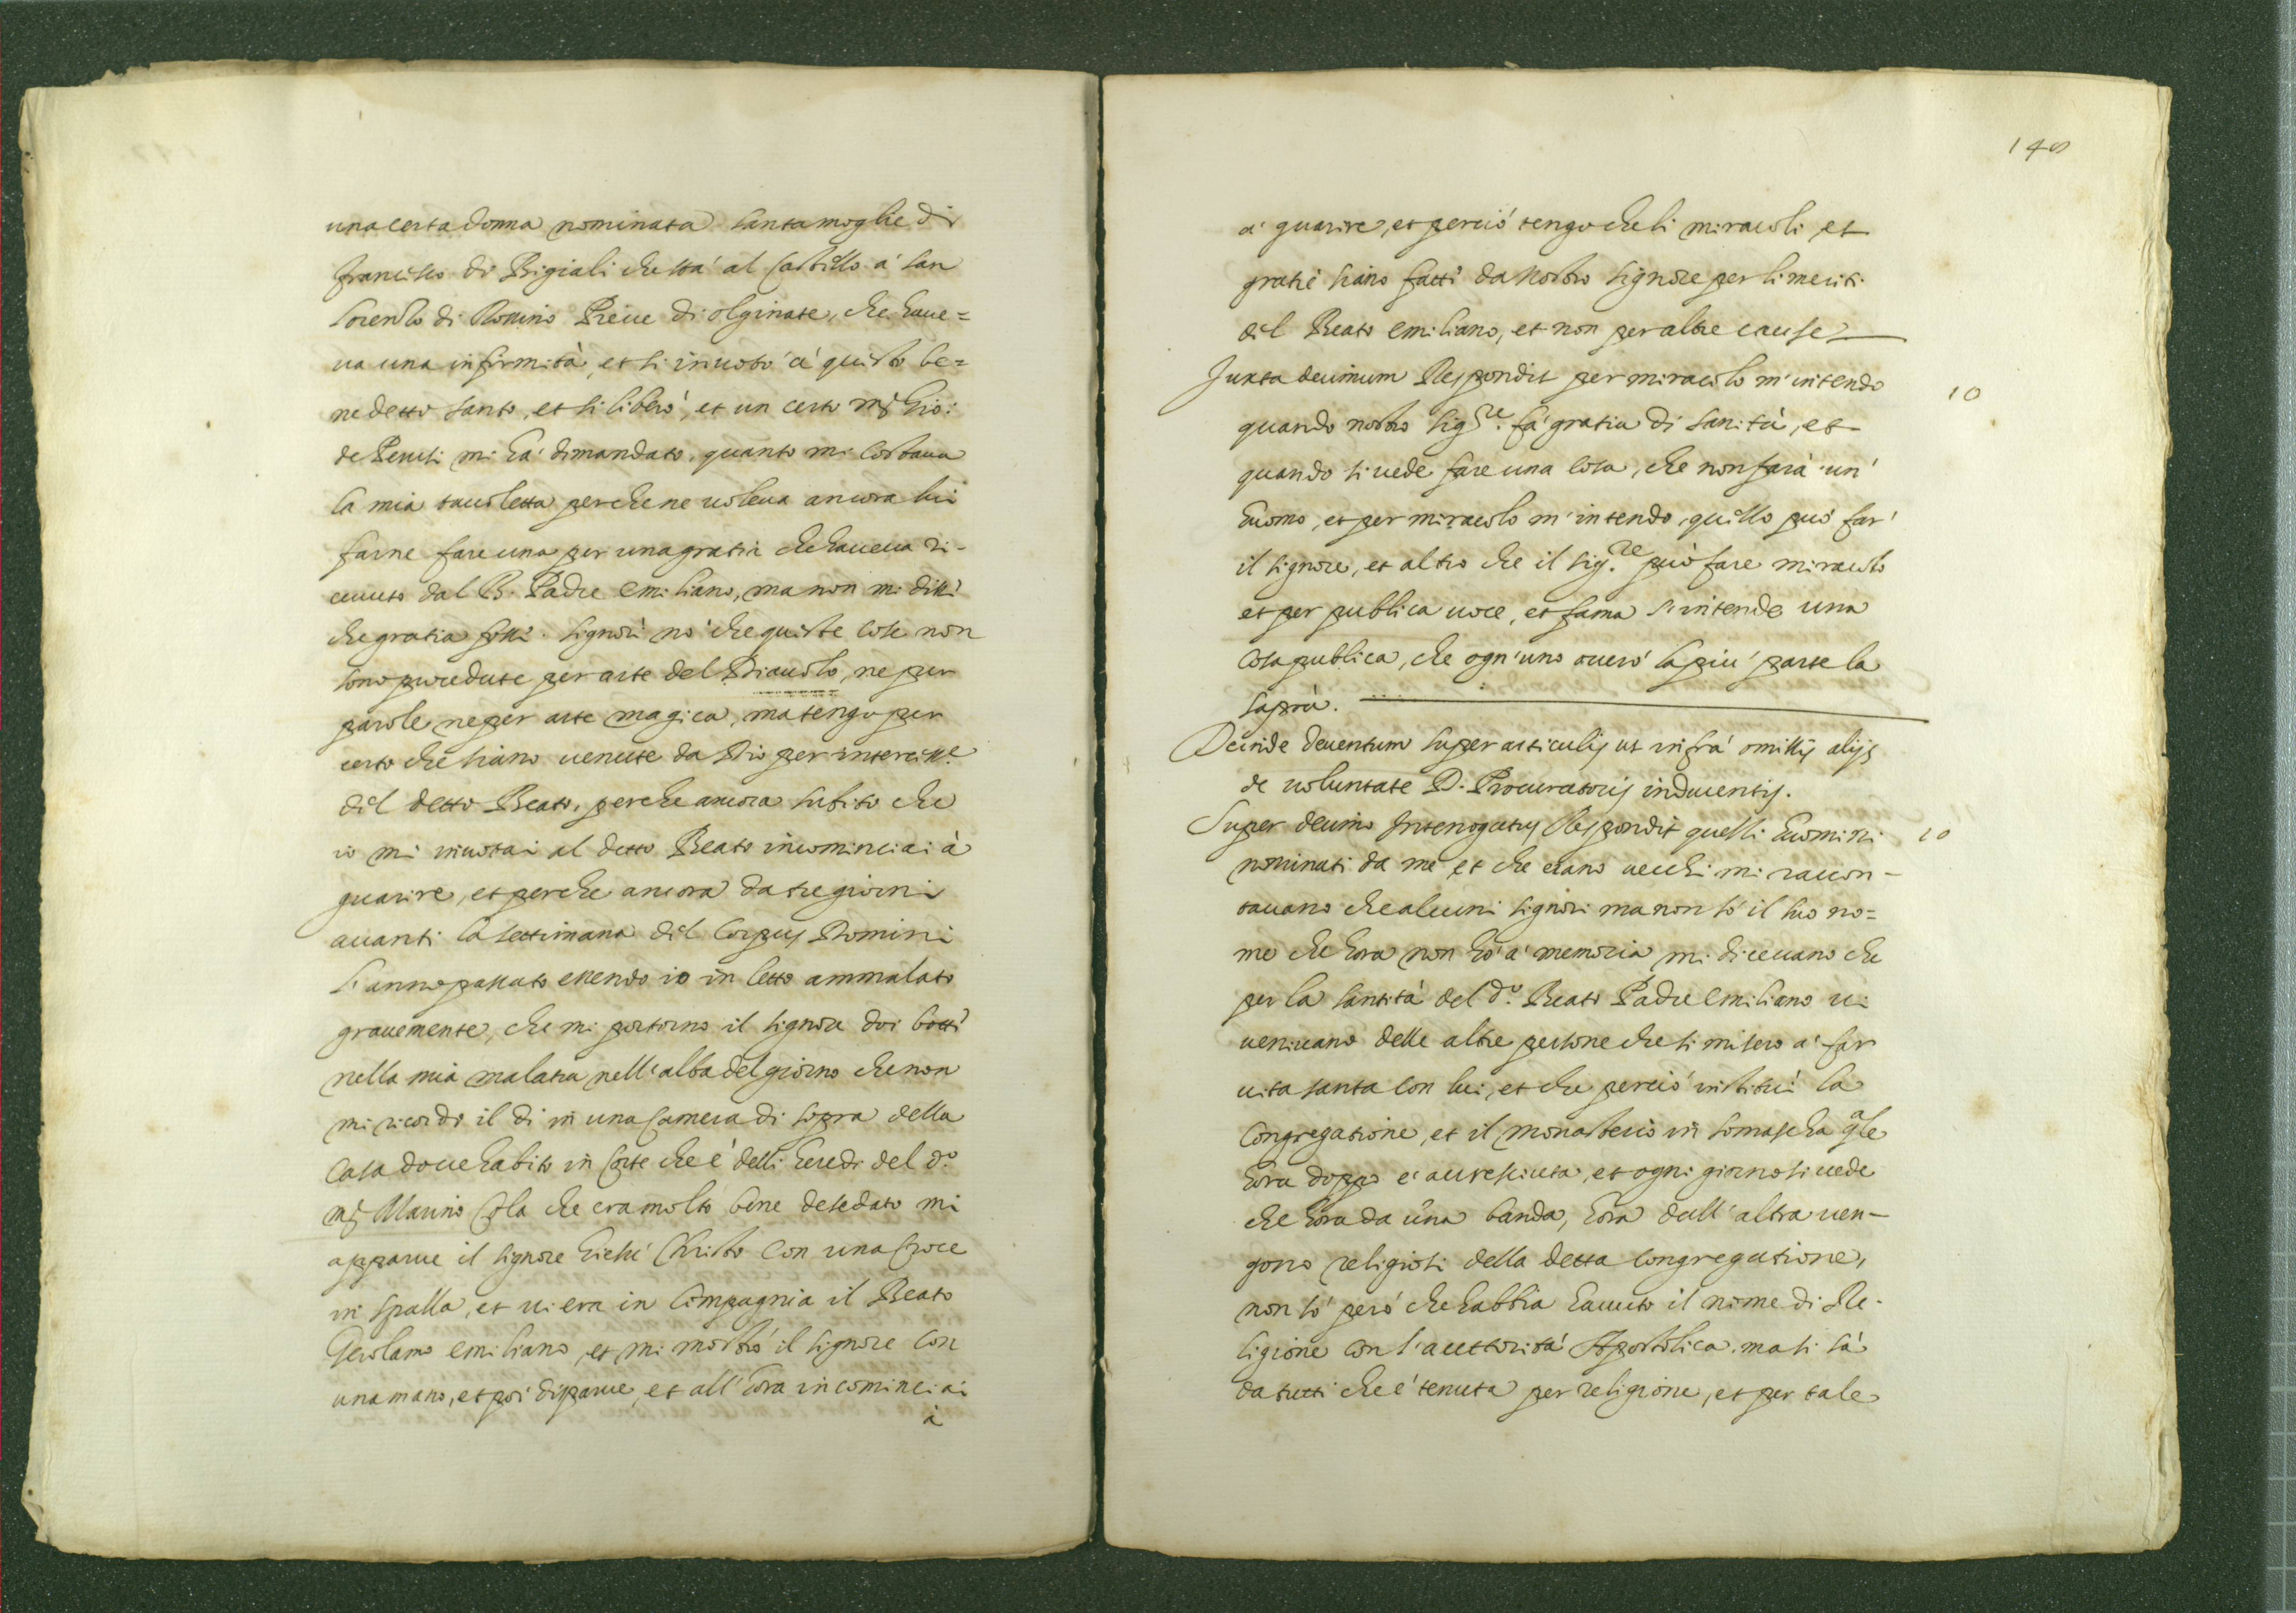 una certa donna nominata santa moglie di
francisco di Bigiali che stà al Castillo à san
Lorenso di Rossino Pieve di olginate, che haue=
ua una infirmità, et si inuotò à quisto be=
nedetto santo, et si liberò, et un certo mʒ Gio:
de Peruti mi hà dimandato, quanto mi Costaua
la mia tauoletta perche ne uoleua ancora lui
farne fare una per una gratia che haueua ri-
ceuuto dal B. Padre emiliano, ma non mi dissi
che gratia fossi. signori nò che quiste cose non
sono procedute per arte del Diauolo, ne per
parole ne per arte magica, ma tengo per
certo che siano uenute da Dio per intercess.e
dil detto Beato, perche ancora subito che
io mi inuotai al detto Beato incominciai à
guarire, et perche ancora da tre giorni
auanti la settimana dil Corpus Domini
l'anno passato essendo io in letto ammalato
grauemente, che mi portorno il signore doi botti
nella mia malatia nell'alba del giorno che non
mi ricordo il di in una Camera di sopra della
Casa doue habito in Corte che è delli heredi del d.o
mʒ Marino Cola che era molto bene desedato mi
apparue il signore Giesù Christo con una Croce
in spalla, et ui era in Compagnia il Beato
Gerolamo emiliano, et mi mostrò il signore con
una mano, et poi disparue, et all'hora incominciai
à
148
à guarire, et perciò tengo che li miracoli et
gratie siano fatti da nostro signore per li meriti
dil Beato emiliano, et non per altre cause
Juxta decimum Respondit per miracolo m'intendo
10
quando nostro sig.re fà gratia di sanità, et
quando si uede fare una Cosa, che non farà un'
huomo, et per miracolo m'intendo, quillo può far'
il signore, et altro che il sig.re può fare miracolo
et per publica uoce, et fama s'intende una
Cosa publica, che ogn'uno ouerò la più parte la
saprà.
Deinde deuentum super articulis ut infrà omissis alijs
de uoluntate D. Procuratoris inducentis.
Super decimo Interrogatus Respondit quelli huomini
10
nominati da me et che erano uecchi mi raccon-
tauano che alcuni signori ma non sò il suo no=
me che hora non hò à memoria mi diceuano che
per la santità del d.o Beato Padre emiliano ui
ueniuano delle altre persone che si misero à far
uita santa con lui, et che perciò instituì la
Congregatione, et il monasterio in somascha qle
hora doppo è accresciuta, et ogni giorno si uede
che hora da una banda, hora dall'altra uen-
gono religiosi della detta Congregatione,
non sò però che habbia hauuto il nome di Re-
ligione con l'auttorità Apostolica. ma si sà
da tutti che è tenuta per religione, et per tale